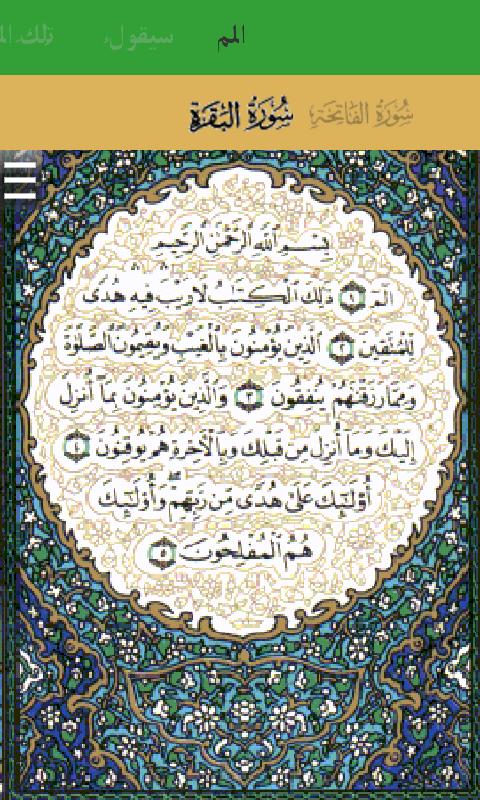 الم سيقول تلك ال
سُورَةُ الفَاتِحَةِ سُورَةُ البَقَرَةِ
بِسْمِ ٱللَّهِ ٱلرَّحْمَٰنِ ٱلرَّحِيمِ
الٓمٓ ١ ذَٰلِكَ ٱلْكِتَٰبُ لَا رَيْبَ ۛ فِيهِ ۛ هُدًى
لِّلْمُتَّقِينَ ٢ ٱلَّذِينَ يُؤْمِنُونَ بِٱلْغَيْبِ وَيُقِيمُونَ ٱلصَّلَوٰةَ
وَمِمَّا رَزَقْنَٰهُمْ يُنفِقُونَ ٣ وَٱلَّذِينَ يُؤْمِنُونَ بِمَآ أُنزِلَ
إِلَيْكَ وَمَآ أُنزِلَ مِن قَبْلِكَ وَبِٱلْءَاخِرَةِ هُمْ يُوقِنُونَ ٤
أُو۟لَٰٓئِكَ عَلَىٰ هُدًى مِّن رَّبِّهِمْ ۖ وَأُو۟لَٰٓئِكَ
هُمُ ٱلْمُفْلِحُونَ ٥